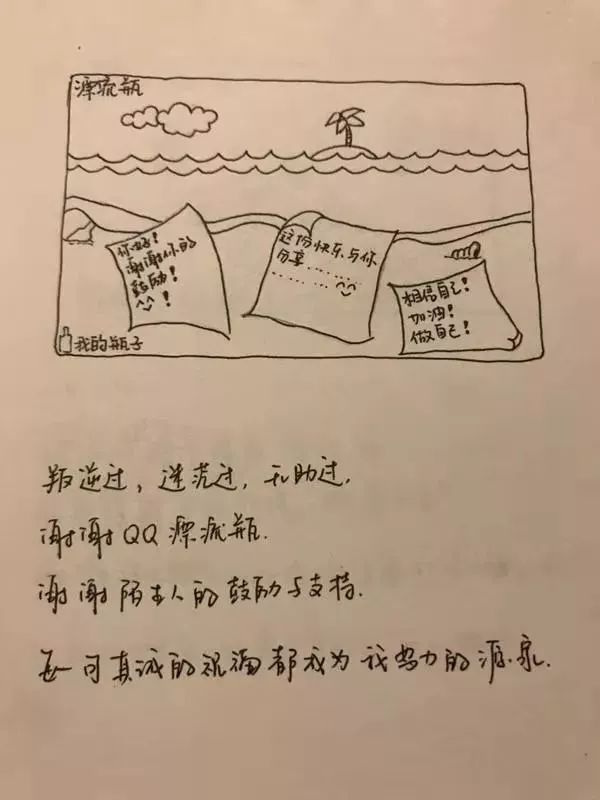 漂流瓶
你好!
谢谢你的
鼓励!
^^!
这份快乐与你
分享..........
........^^
相信自己!
加油!
做自己!
我的瓶子
叛逆过,迷茫过,无助过.
谢谢QQ漂流瓶.
谢谢陌生人的鼓励与支持.
每一句真诚的祝福都成为我努力的源泉.